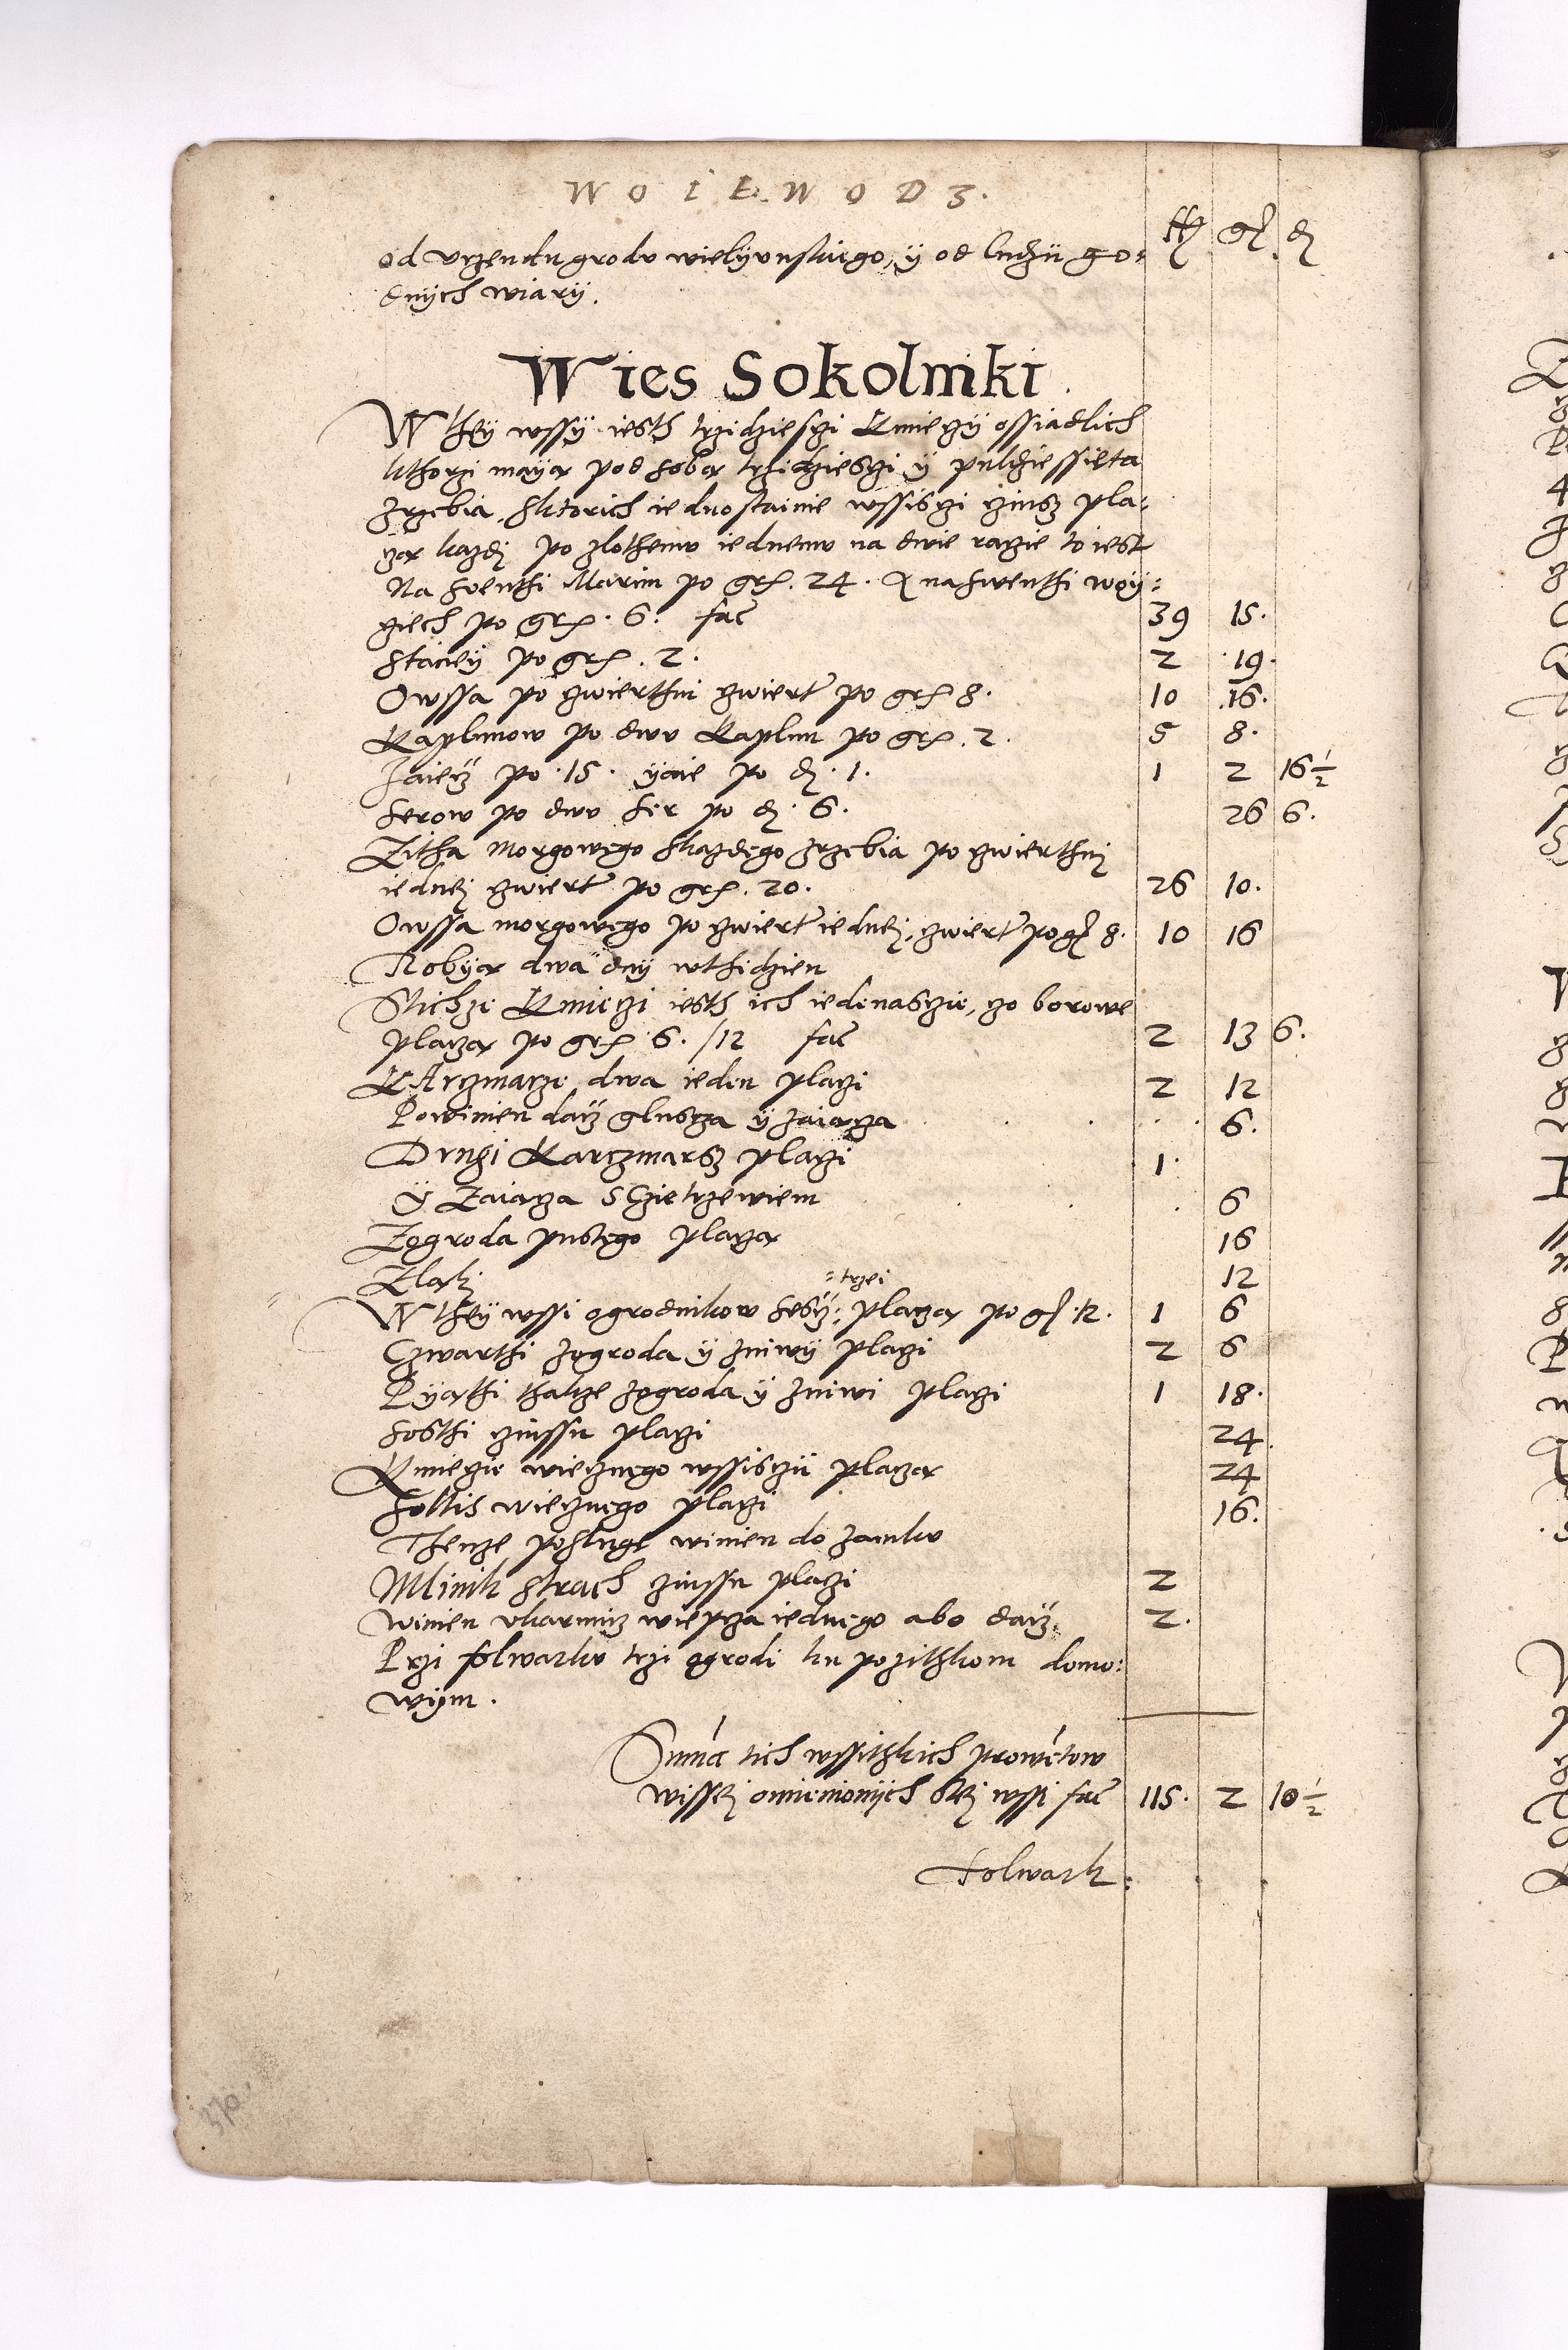 WOIEWODZ.
fl gr d
od vrzendu grodu wielyunskiego, ÿ od ludzÿ go=
dnÿch wiarÿ.
Wies Sokolniki.
W theÿ wssÿ iesth trzidziesczi Kmieczÿ ossiadlich
kthorzi maÿa pod soba trzidziesczi ÿ puldziessięta
zrzebia, sktorich iednostainie wssisczi czinsz pla=
cza kazdj po zlothemu iednemu na dwie raczie to iest
Na swenthi Marcin po grß. 24. A na swenthi woÿ=
ciech po grß. 6. fac 39 15.
Stacieÿ po grß. 2. 2 19.
Owssa po czwierthni czwiert po grß 8. 10 16.
Kaplunow po dwu Kaplun po grß. 2. 5 8.
Jaiecz po 15. ÿaie po d. 1. 1 2 16½
Serow po dwu Ser po d. 6. 26 6.
Zitha morgowego skazdego zrzebia po czwierthnj
iednej czwiert po grß. 20. 26 10.
Owssa morgowego po czwiert iednej, czwiert po gr 8. 10 16
Robÿa dwa dnÿ wthidzien
Sticzze Kmieczi iesth ich iedenasczie, czo borowe
placza po grß 6. /12 fac 2 13 6.
KArczmarze dwa ieden placzi 2 12
Powinien dacz glusza ÿ zaiacza 6.
Drugi Karczmarsz placzi 1.
Ÿ Zaiacza S Czietrzewiem 6
Zogroda pustego placza 16
Z laki 12
W theÿ wssi ogrodnikow sescz; =trzei placza po gr. 12. 1 6
Czwarthi zogroda ÿ zniwÿ placzi 2 6
Pÿathi thakze zogroda ÿ zniwi placzi 1 18.
Sosthi czinssu placzi 24.
Kmiecie wiecznego wssisczÿ placza 24
Soltis wiecznego placzi 16.
Thenze posluge winien do zamku
Mlinik Strach czinssu placzi 2
winien ukarmicz wieprza iednego abo dacz. 2.
Przi folwarku trzi ogrodi ku pozithkom domo=
wÿm.
Summa tich wssithkich prowentow
wissej omienionÿch stej wssi fac 115. 2 10½
Folwark:
370